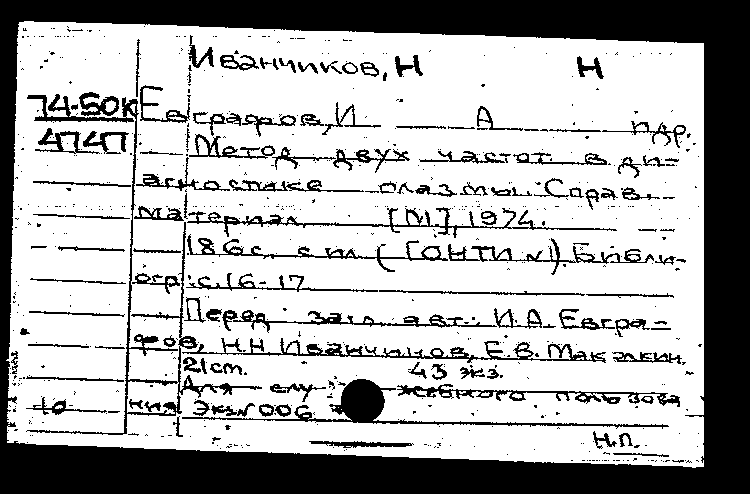 Иванчиков, Н Н
74-50к Евграфов, И А и др.
4747 Метод двух частот в ди-
агностике плазмы. Справ.
материал. [М], 1974.
186 с. с ил ( [ОНТИ №1). Библи-
огр: с. 16-17
Перед загл авт.: И.А. Евгра-
фов, Н.Н Иванчинов, Е.В. Макалкин.
21 cm. 43 экз.
Для служебного пользова
10 ния Экз № 006
Н.П.